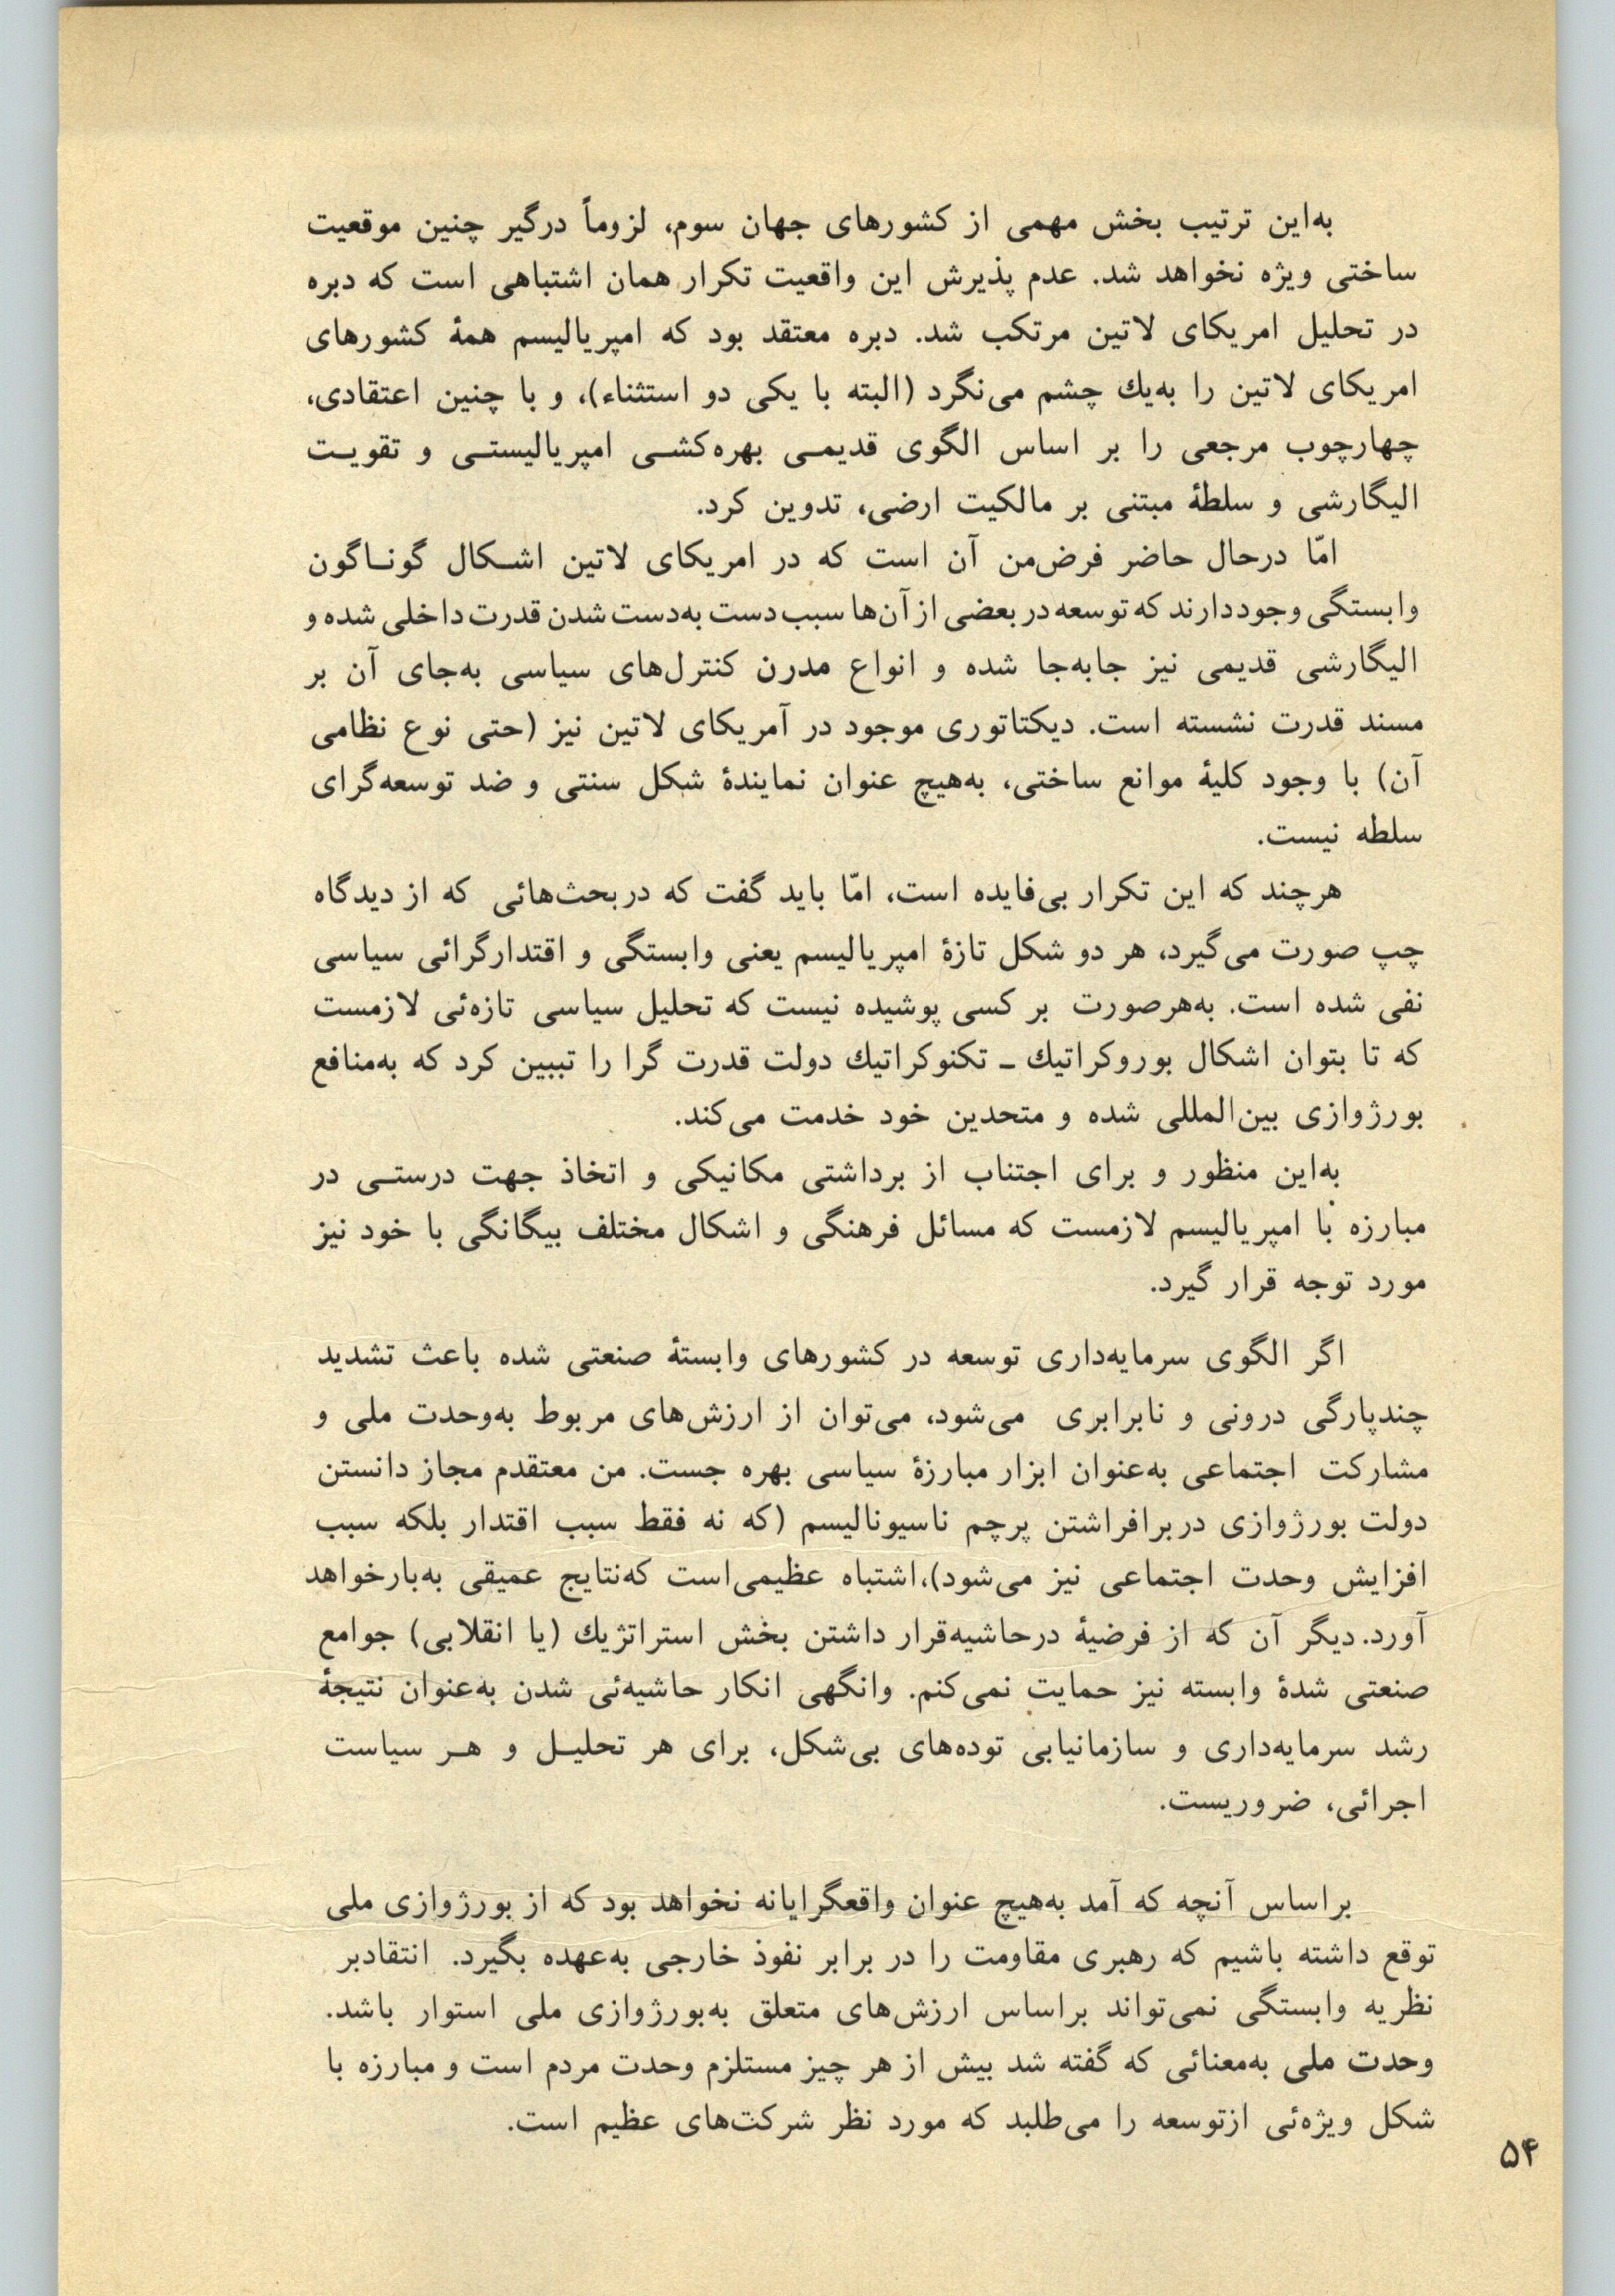 به‌این ترتیب بخش مهمی از کشورهای جهان سوم، لزوماً درگیر چنین موقعیت
ساختی ویژه نخواهد شد. عدم پذیرش این واقعیت تکرار همان اشتباهی است که دبره
در تحلیل امریکای لاتین مرتکب شد. دبره معتقد بود که امپریالیسم همهٔ کشورهای
امریکای لاتین را به‌یك چشم می‌نگرد (البته با یکی دو استثناء)، و با چنین اعتقادی،
چهارچوب مرجعی را بر اساس الگوی قدیمـی بهره‌کشـی امپریالیستـی و تقویـت
الیگارشی و سلطهٔ مبتنی بر مالکیت ارضی، تدوین کرد.
امّا درحال حاضر فرض‌من آن است که در امریکای لاتین اشـکال گونـاگون
وابستگی وجوددارند که توسعه در بعضی از آن‌ها سبب دست به‌دست شدن قدرت داخلی شده و
الیگارشی قدیمی نیز جابه‌جا شده و انواع مدرن کنترل‌های سیاسی به‌جای آن بر
مسند قدرت نشسته است. دیکتاتوری موجود در آمریکای لاتین نیز (حتی نوع نظامی
آن) با وجود کلیهٔ موانع ساختی، به‌هیچ عنوان نمایندهٔ شکل سنتی و ضد توسعه‌گرای
سلطه نیست.
هرچند که این تکرار بی‌فایده است، امّا باید گفت که در بحث‌هائی که از دیدگاه
چپ صورت می‌گیرد، هر دو شکل تازهٔ امپریالیسم یعنی وابستگی و اقتدارگرائی سیاسی
نفی شده است. به‌هرصورت بر کسی پوشیده نیست که تحلیل سیاسی تازه‌ئی لازمست
که تا بتوان اشکال بوروکراتیك ـ تکنوکراتیك دولت قدرت گرا را تبیین کرد که به‌منافع
بورژوازی بین‌المللی شده و متحدین خود خدمت می‌کند.
به‌این منظور و برای اجتناب از برداشتی مکانیکی و اتخاذ جهت درستـی در
مبارزه با امپریالیسم لازمست که مسائل فرهنگی و اشکال مختلف بیگانگی با خود نیز
مورد توجه قرار گیرد.
اگر الگوی سرمایه‌داری توسعه در کشورهای وابستهٔ صنعتی شده باعث تشدید
چندپارگی درونی و نابرابری می‌شود، می‌توان از ارزش‌های مربوط به‌وحدت ملی و
مشارکت اجتماعی به‌عنوان ابزار مبارزهٔ سیاسی بهره جست. من معتقدم مجاز دانستن
دولت بورژوازی دربرافراشتن پرچم ناسیونالیسم (که نه فقط سبب اقتدار بلکه سبب
افزایش وحدت اجتماعی نیز می‌شود)،اشتباه عظیمی‌است که‌نتایج عمیقی به‌بارخواهد
آورد. دیگر آن که از فرضیهٔ درحاشیه‌قرار داشتن بخش استراتژیك (یا انقلابی) جوامع
صنعتی شدهٔ وابسته نیز حمایت نمی‌کنم. وانگهی انکار حاشیه‌ئی شدن به‌عنوان نتیجهٔ
رشد سرمایه‌داری و سازمانیابی توده‌های بی‌شکل، برای هر تحلیـل و هـر سیاست
اجرائی، ضروریست.
براساس آنچه که آمد به‌هیچ عنوان واقعگرایانه نخواهد بود که از بورژوازی ملی
توقع داشته باشیم که رهبری مقاومت را در برابر نفوذ خارجی به‌عهده بگیرد. انتقادبر
نظریه وابستگی نمی‌تواند براساس ارزش‌های متعلق به‌بورژوازی ملی استوار باشد.
وحدت ملی به‌معنائی که گفته شد بیش از هر چیز مستلزم وحدت مردم است و مبارزه با
شکل ویژه‌ئی ازتوسعه را می‌طلبد که مورد نظر شرکت‌های عظیم است.
۵۴